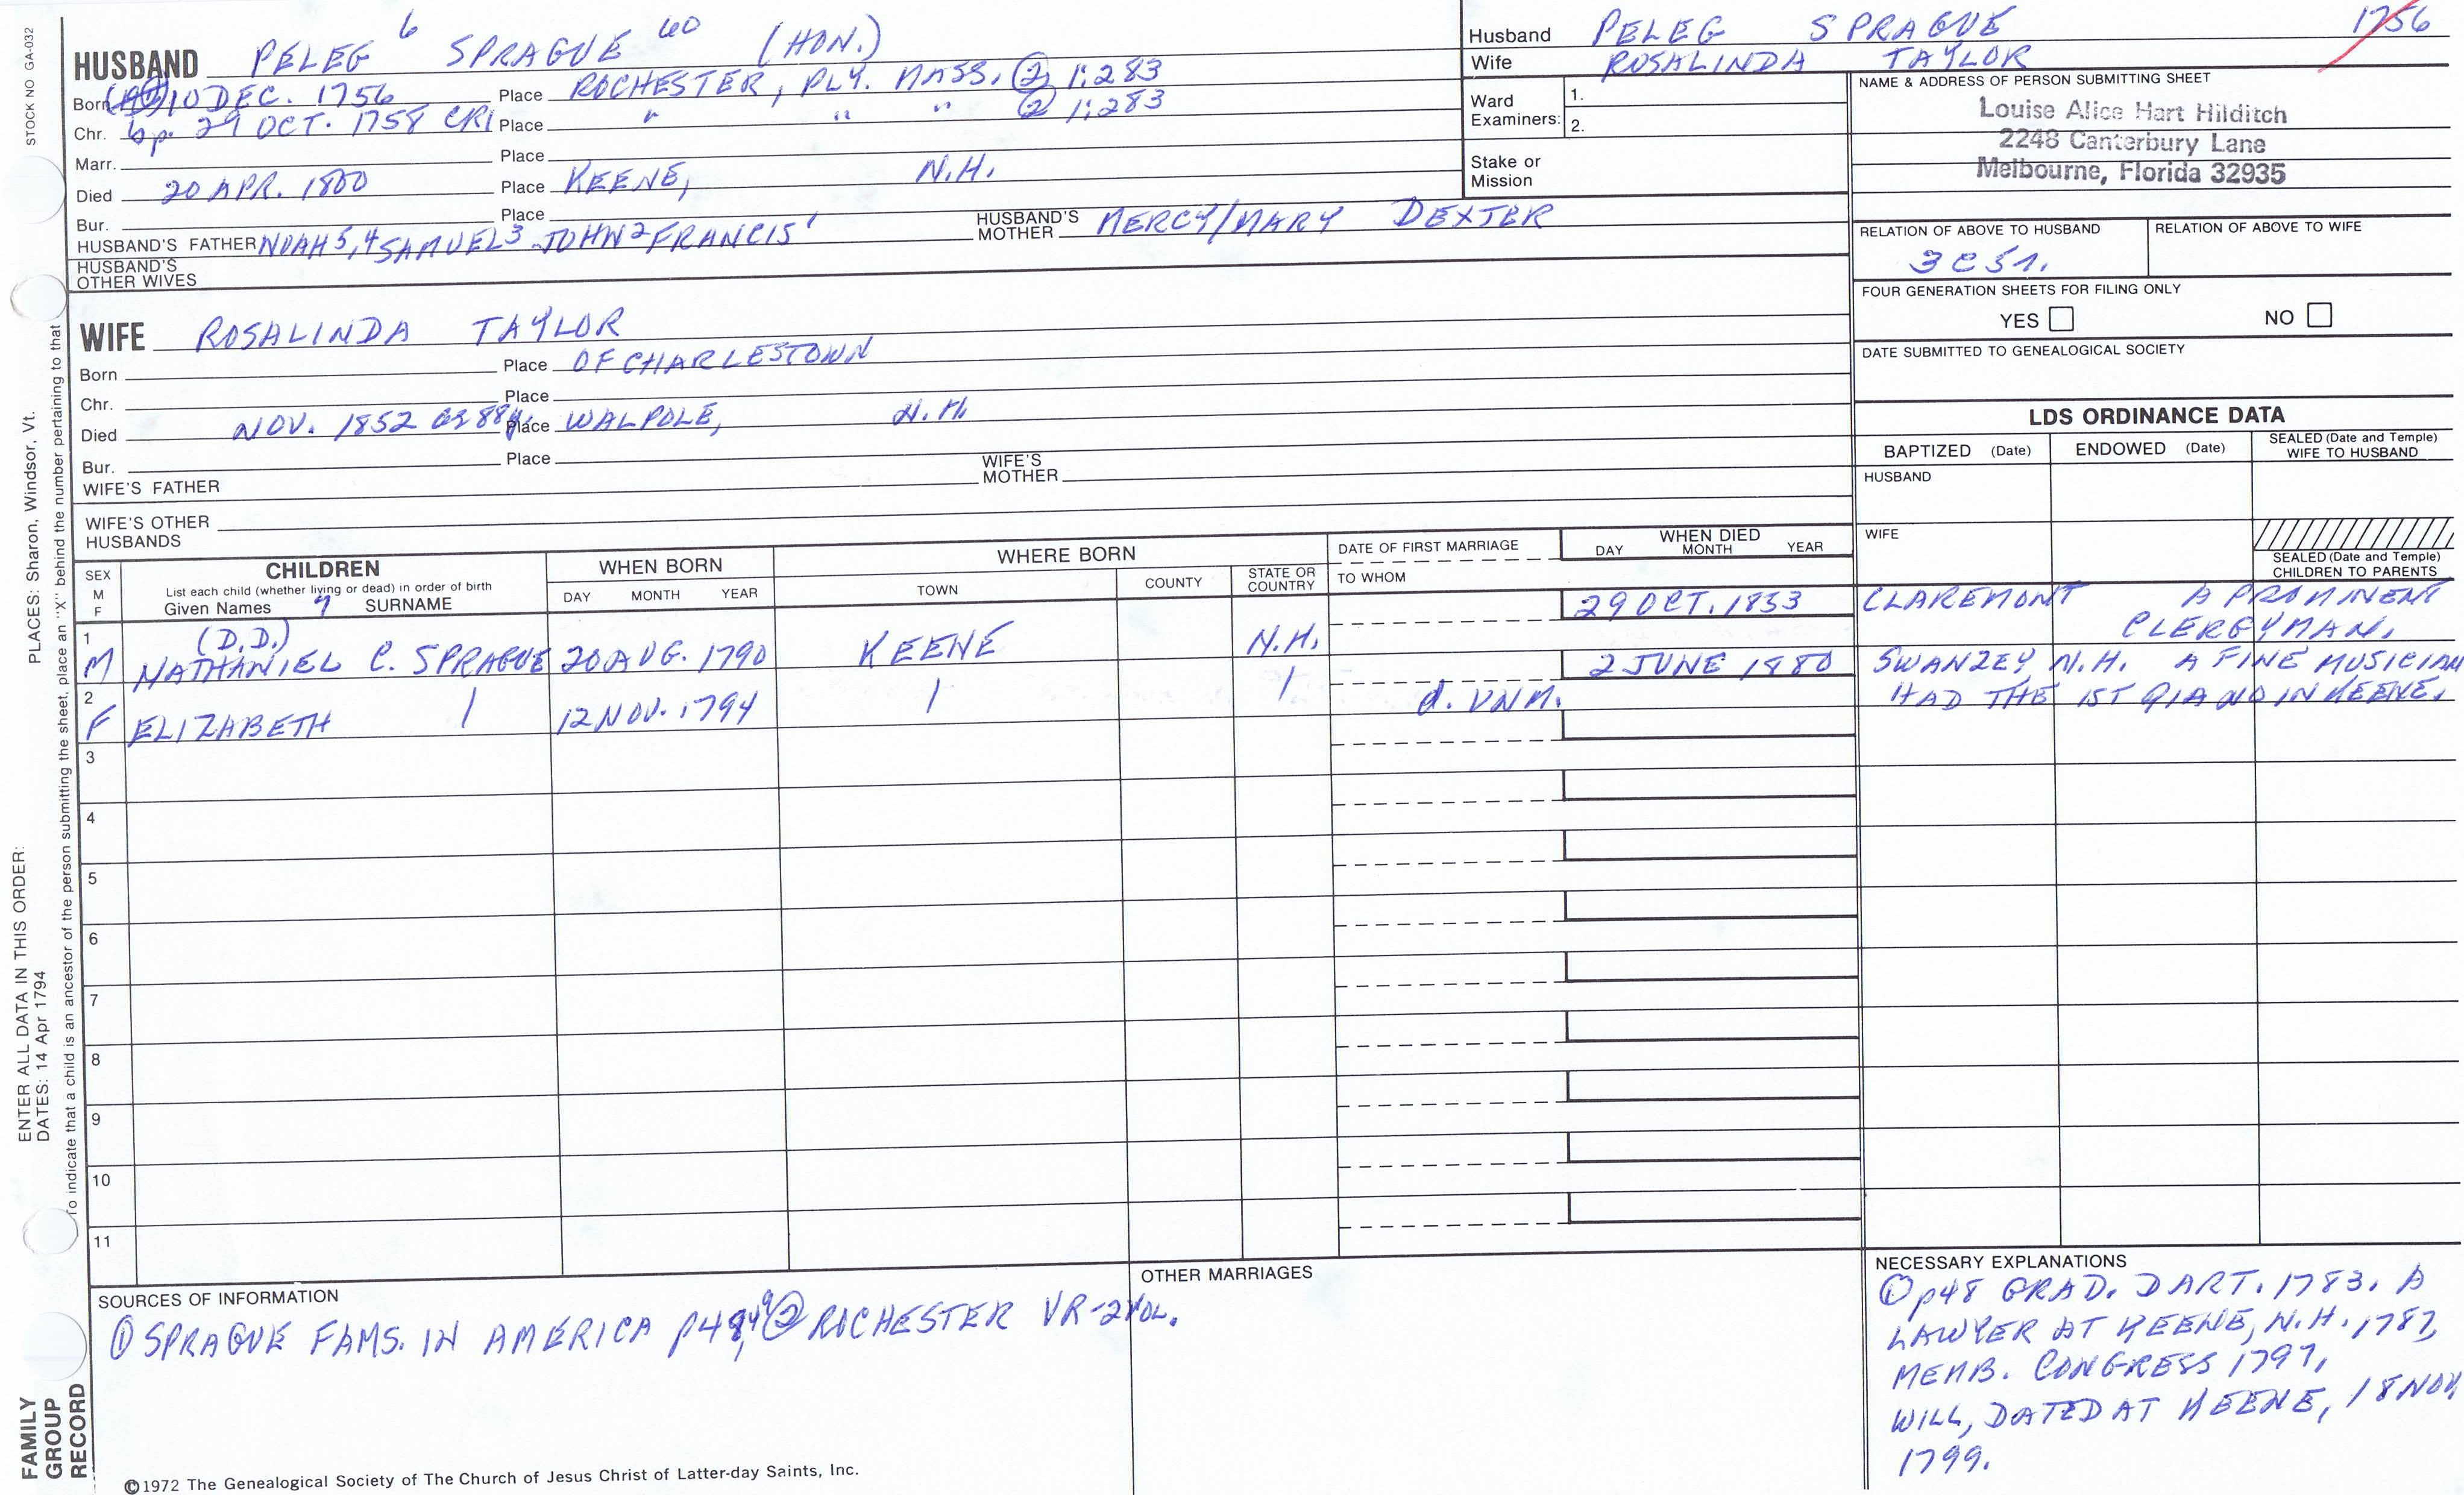 STOCK NO GA-032
HUSBAND PELEG 6 SPRAGUE 60 (HON.)
Born 10 DEC. 1756 Place ROCHESTER, PLY. MASS. ② 1:283
Chr. bp. 29 OCT. 1758 CR1 Place " " " ② 1:283
Marr. Place
Died 20 APR. 1800 Place KEENE, N.H.
Bur. Place
HUSBAND'S FATHER NOAH 5,4 SAMUEL 3 JOHN 2 FRANCIS 1 HUSBAND'S MOTHER MERCY/MARY DEXTER
HUSBAND'S OTHER WIVES
WIFE ROSALINDA TAYLOR
Born Place OF CHARLESTOWN
Chr. Place
Died NOV. 1852 88y. Place WALPOLE, N.H.
Bur. Place
WIFE'S FATHER WIFE'S MOTHER
WIFE'S OTHER HUSBANDS
Husband PELEG SPRAGUE 1756
Wife ROSALINDA TAYLOR
Ward Examiners: 1.
2.
Stake or Mission
NAME & ADDRESS OF PERSON SUBMITTING SHEET
Louise Alice Hart Hilditch
2248 Canterbury Lane
Melbourne, Florida 32935
RELATION OF ABOVE TO HUSBAND RELATION OF ABOVE TO WIFE
3C5r.
FOUR GENERATION SHEETS FOR FILING ONLY
YES NO
DATE SUBMITTED TO GENEALOGICAL SOCIETY
LDS ORDINANCE DATA
BAPTIZED (Date) ENDOWED (Date) SEALED (Date and Temple) WIFE TO HUSBAND
HUSBAND
WIFE
SEALED (Date and Temple) CHILDREN TO PARENTS
SEX M F
CHILDREN
List each child (whether living or dead) in order of birth
Given Names 7 SURNAME
WHEN BORN
DAY MONTH YEAR
WHERE BORN
TOWN COUNTY STATE OR COUNTRY
DATE OF FIRST MARRIAGE
TO WHOM
WHEN DIED
DAY MONTH YEAR
29 OCT. 1853 CLAREMONT A PROMINENT
CLERGYMAN.
1 M (D.D.) NATHANIEL C. SPRAGUE 20 AUG. 1790 KEENE N.H.
2 JUNE 1880 SWANZEY N.H. A FINE MUSICIAN
HAD THE 1ST PIANO IN KEENE.
2 F ELIZABETH 12 NOV. 1794 d. UNM.
3
4
5
6
7
8
9
10
11
SOURCES OF INFORMATION
① SPRAGUE FAMS. IN AMERICA p48,49 ② ROCHESTER VR-2VOL.
OTHER MARRIAGES
NECESSARY EXPLANATIONS
① p48 GRAD. DART. 1783. A
LAWYER AT KEENE, N.H. 1787,
MEMB. CONGRESS 1797,
WILL, DATED AT KEENE, 18 NOV.
1799.
©1972 The Genealogical Society of The Church of Jesus Christ of Latter-day Saints, Inc.
FAMILY
GROUP
RECORD
ENTER ALL DATA IN THIS ORDER:
DATES: 14 Apr 1794
PLACES: Sharon, Windsor, Vt.
To indicate that a child is an ancestor of the person submitting the sheet, place an "X" behind the number pertaining to that